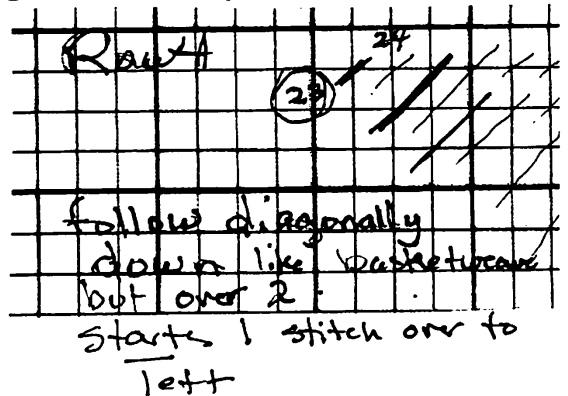 Row 4
24
23
follow diagonally
down like basketweave
but over 2.
starts 1 stitch over to
left